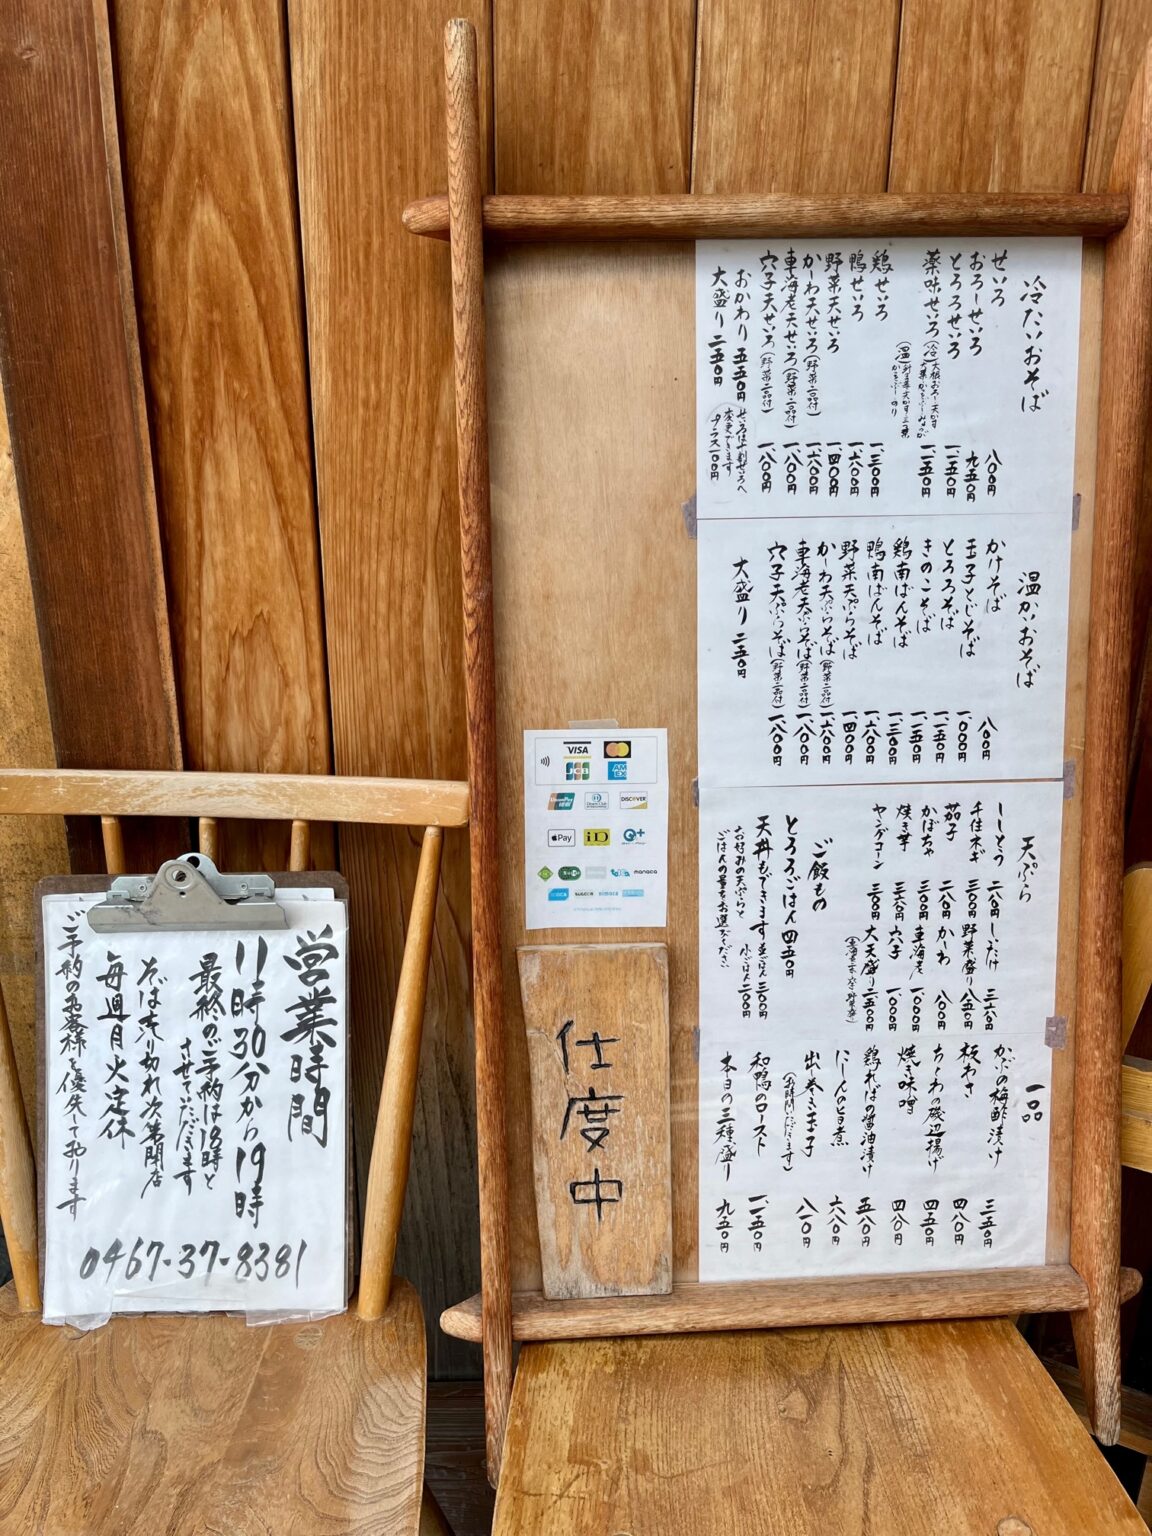 冷たいおそば
せいろ 八〇〇円
おろしせいろ 九五〇円
とろろせいろ 一、一五〇円
薬味せいろ 一、一五〇円
鶏せいろ 一、三〇〇円
鴨せいろ 一、六〇〇円
野菜天せいろ 一、四〇〇円
かしわ天せいろ(野菜二品付) 一、六〇〇円
車海老天せいろ(野菜二品付) 一、八〇〇円
穴子天せいろ(野菜二品付) 一、八〇〇円
おかわり 五五〇円
大盛り 二五〇円
せいろは十割せいろへ
変更できます
プラス一〇〇円
温かいおそば
かけそば 八〇〇円
玉子とじそば 一、〇〇〇円
とろろそば 一、一五〇円
きのこそば 一、一五〇円
鶏南ばんそば 一、三〇〇円
鴨南ばんそば 一、六〇〇円
野菜天ぷらそば 一、四〇〇円
かしわ天ぷらそば(野菜二品付) 一、六〇〇円
車海老天ぷらそば(野菜二品付) 一、八〇〇円
穴子天ぷらそば(野菜二品付) 一、八〇〇円
大盛り 二五〇円
天ぷら
ししとう 二八〇円
千住ネギ 三〇〇円
茄子 二八〇円
かぼちゃ 三〇〇円
焼き芋 三六〇円
ヤングコーン 三〇〇円
しいたけ 三六〇円
野菜盛り 八五〇円
かしわ 八〇〇円
車海老 一、〇〇〇円
穴子 一、〇〇〇円
大天盛り 二、五〇〇円
ご飯もの
とろろごはん 四五〇円
天丼もできます 並ごはん 三〇〇円
小ごはん 二〇〇円
お好みの天ぷらと
ごはんの量をお選びください
一品
かぶの梅酢漬け 三五〇円
板わさ 四八〇円
ちくわの磯辺揚げ 四五〇円
焼き味噌 四八〇円
鶏ればの醤油漬け 五八〇円
にしんの旨煮 六八〇円
出し巻き玉子 八一〇円
(お時間いただきます)
和鴨のロースト 一、一五〇円
本日の三種盛り 九五〇円
VISA
JCB
AM EX
UnionPay
Diners Club
DISCOVER
Pay
iD
manaca
SUGOCA
nimoca
仕度中
営業時間
11時30分から19時
最終のご予約は18時と
させていただきます
そば売り切れ次第閉店
毎週月火定休
ご予約のお客様を優先しております
0467-37-8381